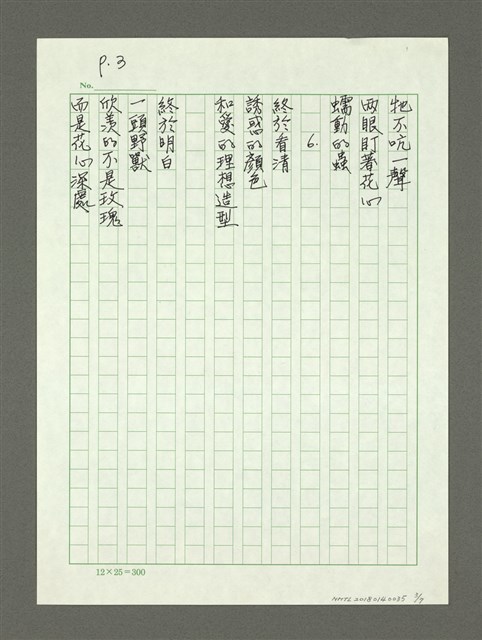 P.3
No.
牠不吭一聲
兩眼盯著花心
蠕動的蟲
6.
終於看清
誘惑的顏色
和愛的理想造型
終於明白
一頭野獸
欣羨的不是玫瑰
而是花心深處
12×25=300
NMTL20180140085 3/7